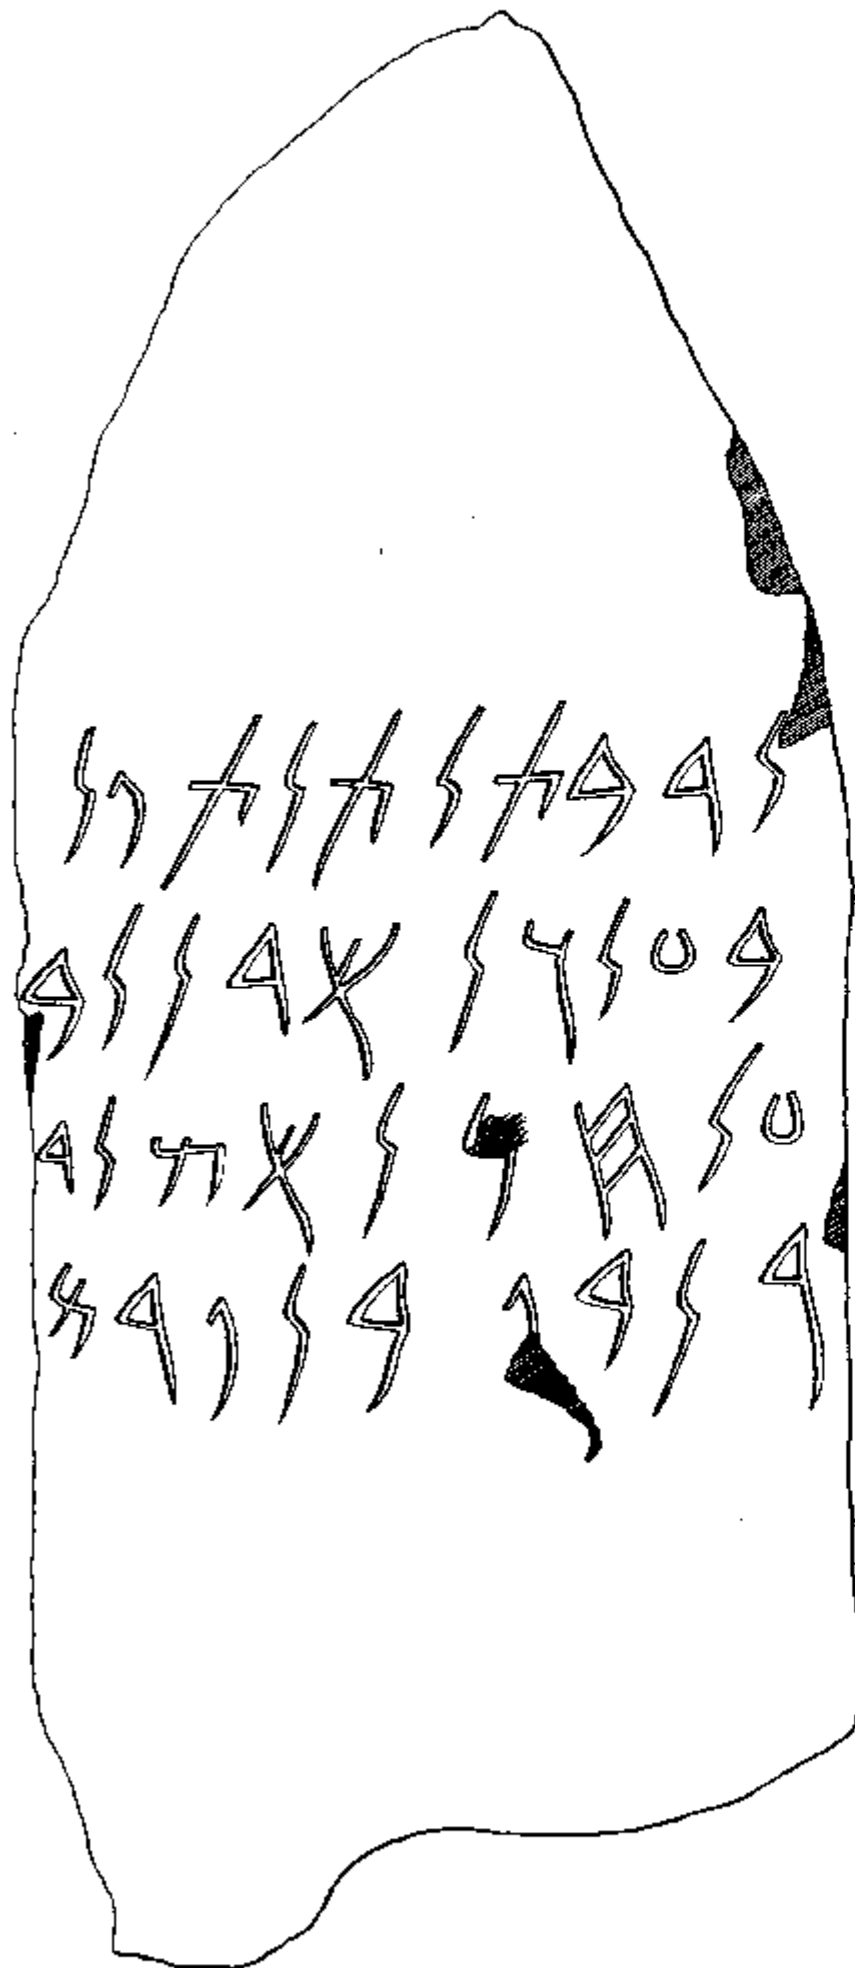 𐤋𐤓𐤁𐤕𐤋𐤕𐤍𐤕𐤐𐤍
𐤁𐤏𐤋𐤅𐤋𐤀𐤃𐤍𐤋𐤁
𐤏𐤋𐤇𐤌𐤍𐤀𐤔𐤍𐤃
𐤓 𐤁𐤍